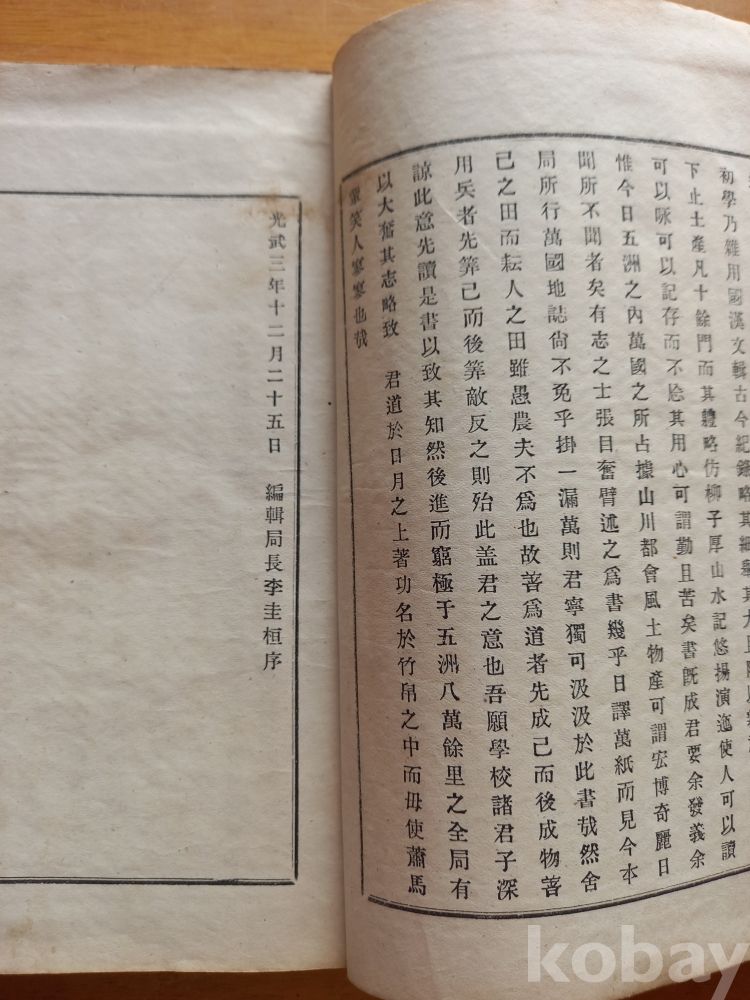 初學乃雜用國漢文輯古今紀錄略其細擧其大
下止土產凡十餘門而其軆略仿柳子厚山水記悠揚演迤使人可以讀
可以咏可以記存而不惉其用心可謂勤且苦矣書旣成君要余發義余
惟今日五洲之內萬國之所占據山川都會風土物產可謂宏博奇麗日
聞所不聞者矣有志之士張目奮臂述之爲書幾乎日譯萬紙而見今本
局所行萬國地誌尙不免乎掛一漏萬則君寧獨可汲汲於此書哉然舍
己之田而耘人之田雖愚農夫不爲也故善爲道者先成己而後成物善
用兵者先筭己而後筭敵反之則殆此盖君之意也吾願學校諸君子深
諒此意先讀是書以致其知然後進而窮極于五洲八萬餘里之全局有
以大奮其志略致 君道於日月之上著功名於竹帛之中而毋使蕭馬
軰笑人寥寥也哉
光武三年十二月二十五日 編輯局長李圭桓序
kobay